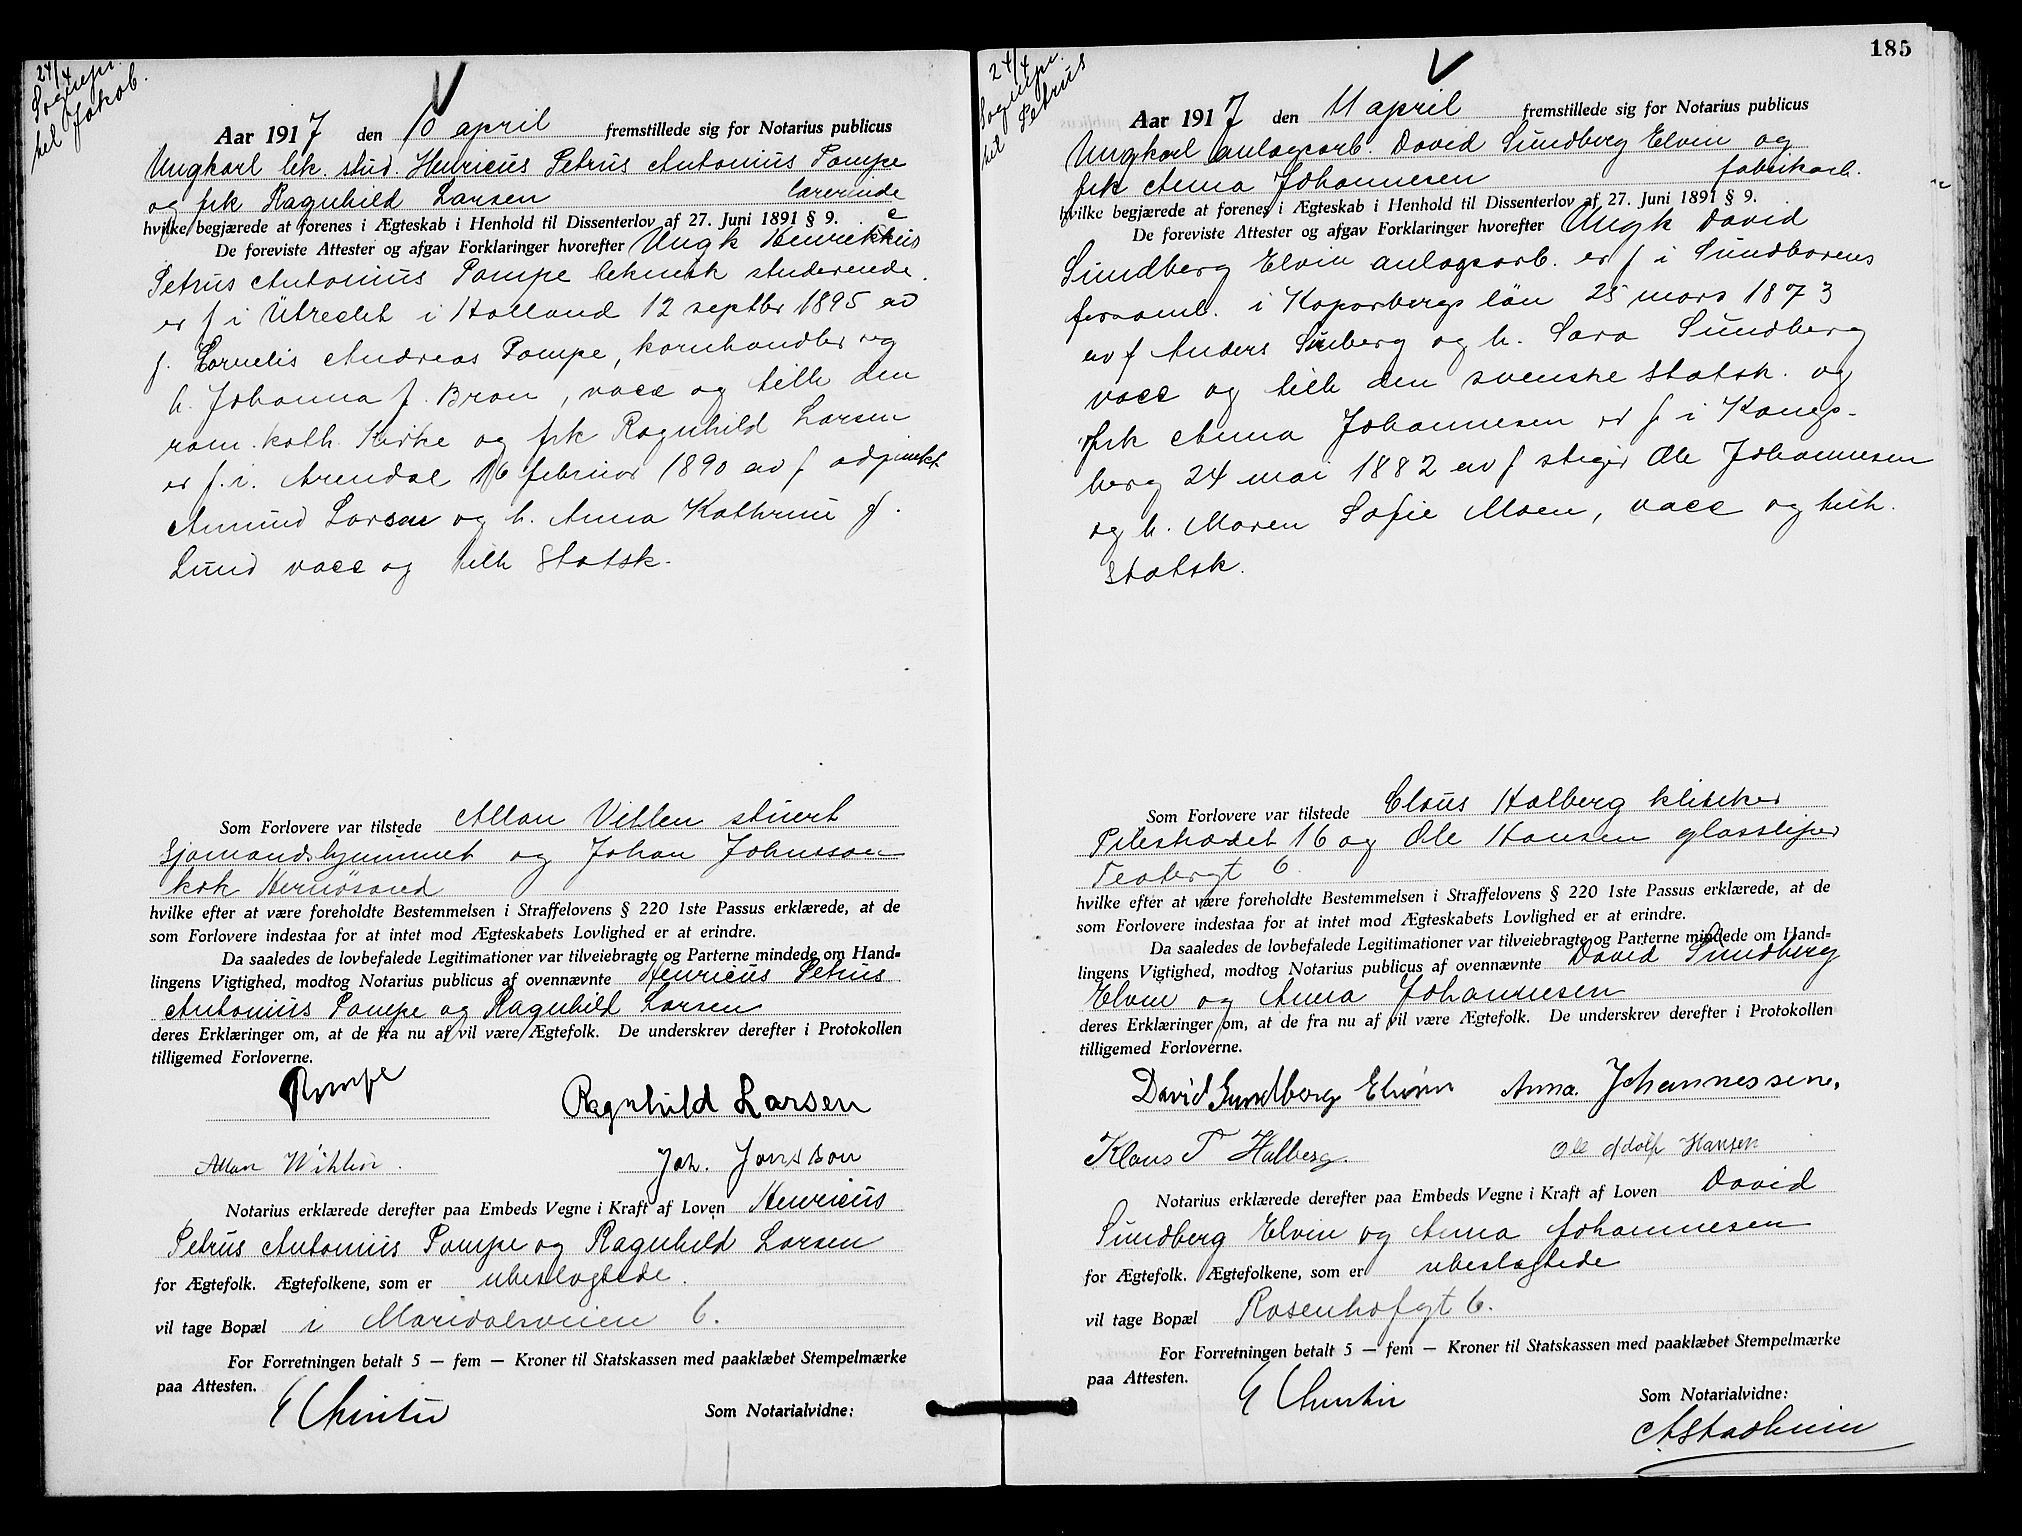 24/4
Sognepr.
til Jakob.
Aar 1917 den 10 april fremstillede sig for Notarius publicus
Ungkarl tek. stud. Henricus Petrus Antonius Pompe
og frk Ragnhild Larsen lærerinde
hvilke begjærede at forenes i Ægteskab i Henhold til Dissenterlov af 27. Juni 1891 § 9.
De foreviste Attester og afgav Forklaringer hvorefter Ungk Henricus
Petrus Antonius Pompe teknisk studerende
er f i Utrecht i Holland 12 septbr 1895 av
f. Cornelis Andreas Pompe, kornhandler og
h. Johanna f. Bron, vacc og tilh den
rom. kath. Kirke og frk Ragnhild Larsen
er f. i. Arendal 16 februar 1890 av f adjunkt
Amund Larsen og h. Anna Kathrine f.
Lund vacc og tilh Statsk.
Som Forlovere var tilstede Allan Vihlen stuert
Sjømandshjemmet og Johan Johnsson
kok Hernøsand
hvilke efter at være foreholdte Bestemmelsen i Straffelovens § 220 1ste Passus erklærede, at de
som Forlovere indestaa for at intet mod Ægteskabets Lovlighed er at erindre.
Da saaledes de lovbefalede Legitimationer var tilveiebragte og Parterne mindede om Hand-
lingens Vigtighed, modtog Notarius publicus af ovennævnte Henricus Petrus
Antonius Pompe og Ragnhild Larsen
deres Erklæringer om, at de fra nu af vil være Ægtefolk. De underskrev derefter i Protokollen
tilligemed Forloverne.
Pompe Ragnhild Larsen
Allan Wihlen. Joh. Jonsson
Notarius erklærede derefter paa Embeds Vegne i Kraft af Loven Henricus
Petrus Antonius Pompe og Ragnhild Larsen
for Ægtefolk. Ægtefolkene, som er ubeslægtede.
vil tage Bopæl i Maridalsveien 6.
For Forretningen betalt 5 — fem — Kroner til Statskassen med paaklæbet Stempelmærke
paa Attesten.
Som Notarialvidne:
185
24/4
Sognepr.
til Petrus
Aar 1917 den 11 april fremstillede sig for Notarius publicus
Ungkarl anlægsarb. David Sundberg Elvin og
frk Anna Johannesen fabrikarb.
hvilke begjærede at forenes i Ægteskab i Henhold til Dissenterlov af 27. Juni 1891 § 9.
De foreviste Attester og afgav Forklaringer hvorefter Ungk David
Sundberg Elvin anlægsarb. er f i Sundborns
forsaml. i Koparbergs län 25 mars 1873
av f Anders Sunberg og h. Sara Sundberg
vacc og tilh den svenske Statsk. og
frk Anna Johannesen er f i Kongs-
berg 24 mai 1882 av f stiger Ole Johannesen
og h. Maren Sofie Moen, vacc og tilh.
Statsk.
Som Forlovere var tilstede Claus Halberg
Pilestrædet 16 og Ole Hansen glassliper
6.
hvilke efter at være foreholdte Bestemmelsen i Straffelovens § 220 1ste Passus erklærede, at de
som Forlovere indestaa for at intet mod Ægteskabets Lovlighed er at erindre.
Da saaledes de lovbefalede Legitimationer var tilveiebragte og Parterne mindede om Hand-
lingens Vigtighed, modtog Notarius publicus af ovennævnte David Sundberg
Elvin og Anna Johannesen
deres Erklæringer om, at de fra nu af vil være Ægtefolk. De underskrev derefter i Protokollen
tilligemed Forloverne.
David Sundberg Elvin Anna. Johannessen.
Klaus T Halberg. Ole Adolf Hansen
Notarius erklærede derefter paa Embeds Vegne i Kraft af Loven David
Sundberg Elvin og Anna Johannesen
for Ægtefolk. Ægtefolkene, som er ubeslægtede
vil tage Bopæl Rosenhofgt 6.
For Forretningen betalt 5 — fem — Kroner til Statskassen med paaklæbet Stempelmærke
paa Attesten.
Som Notarialvidne: